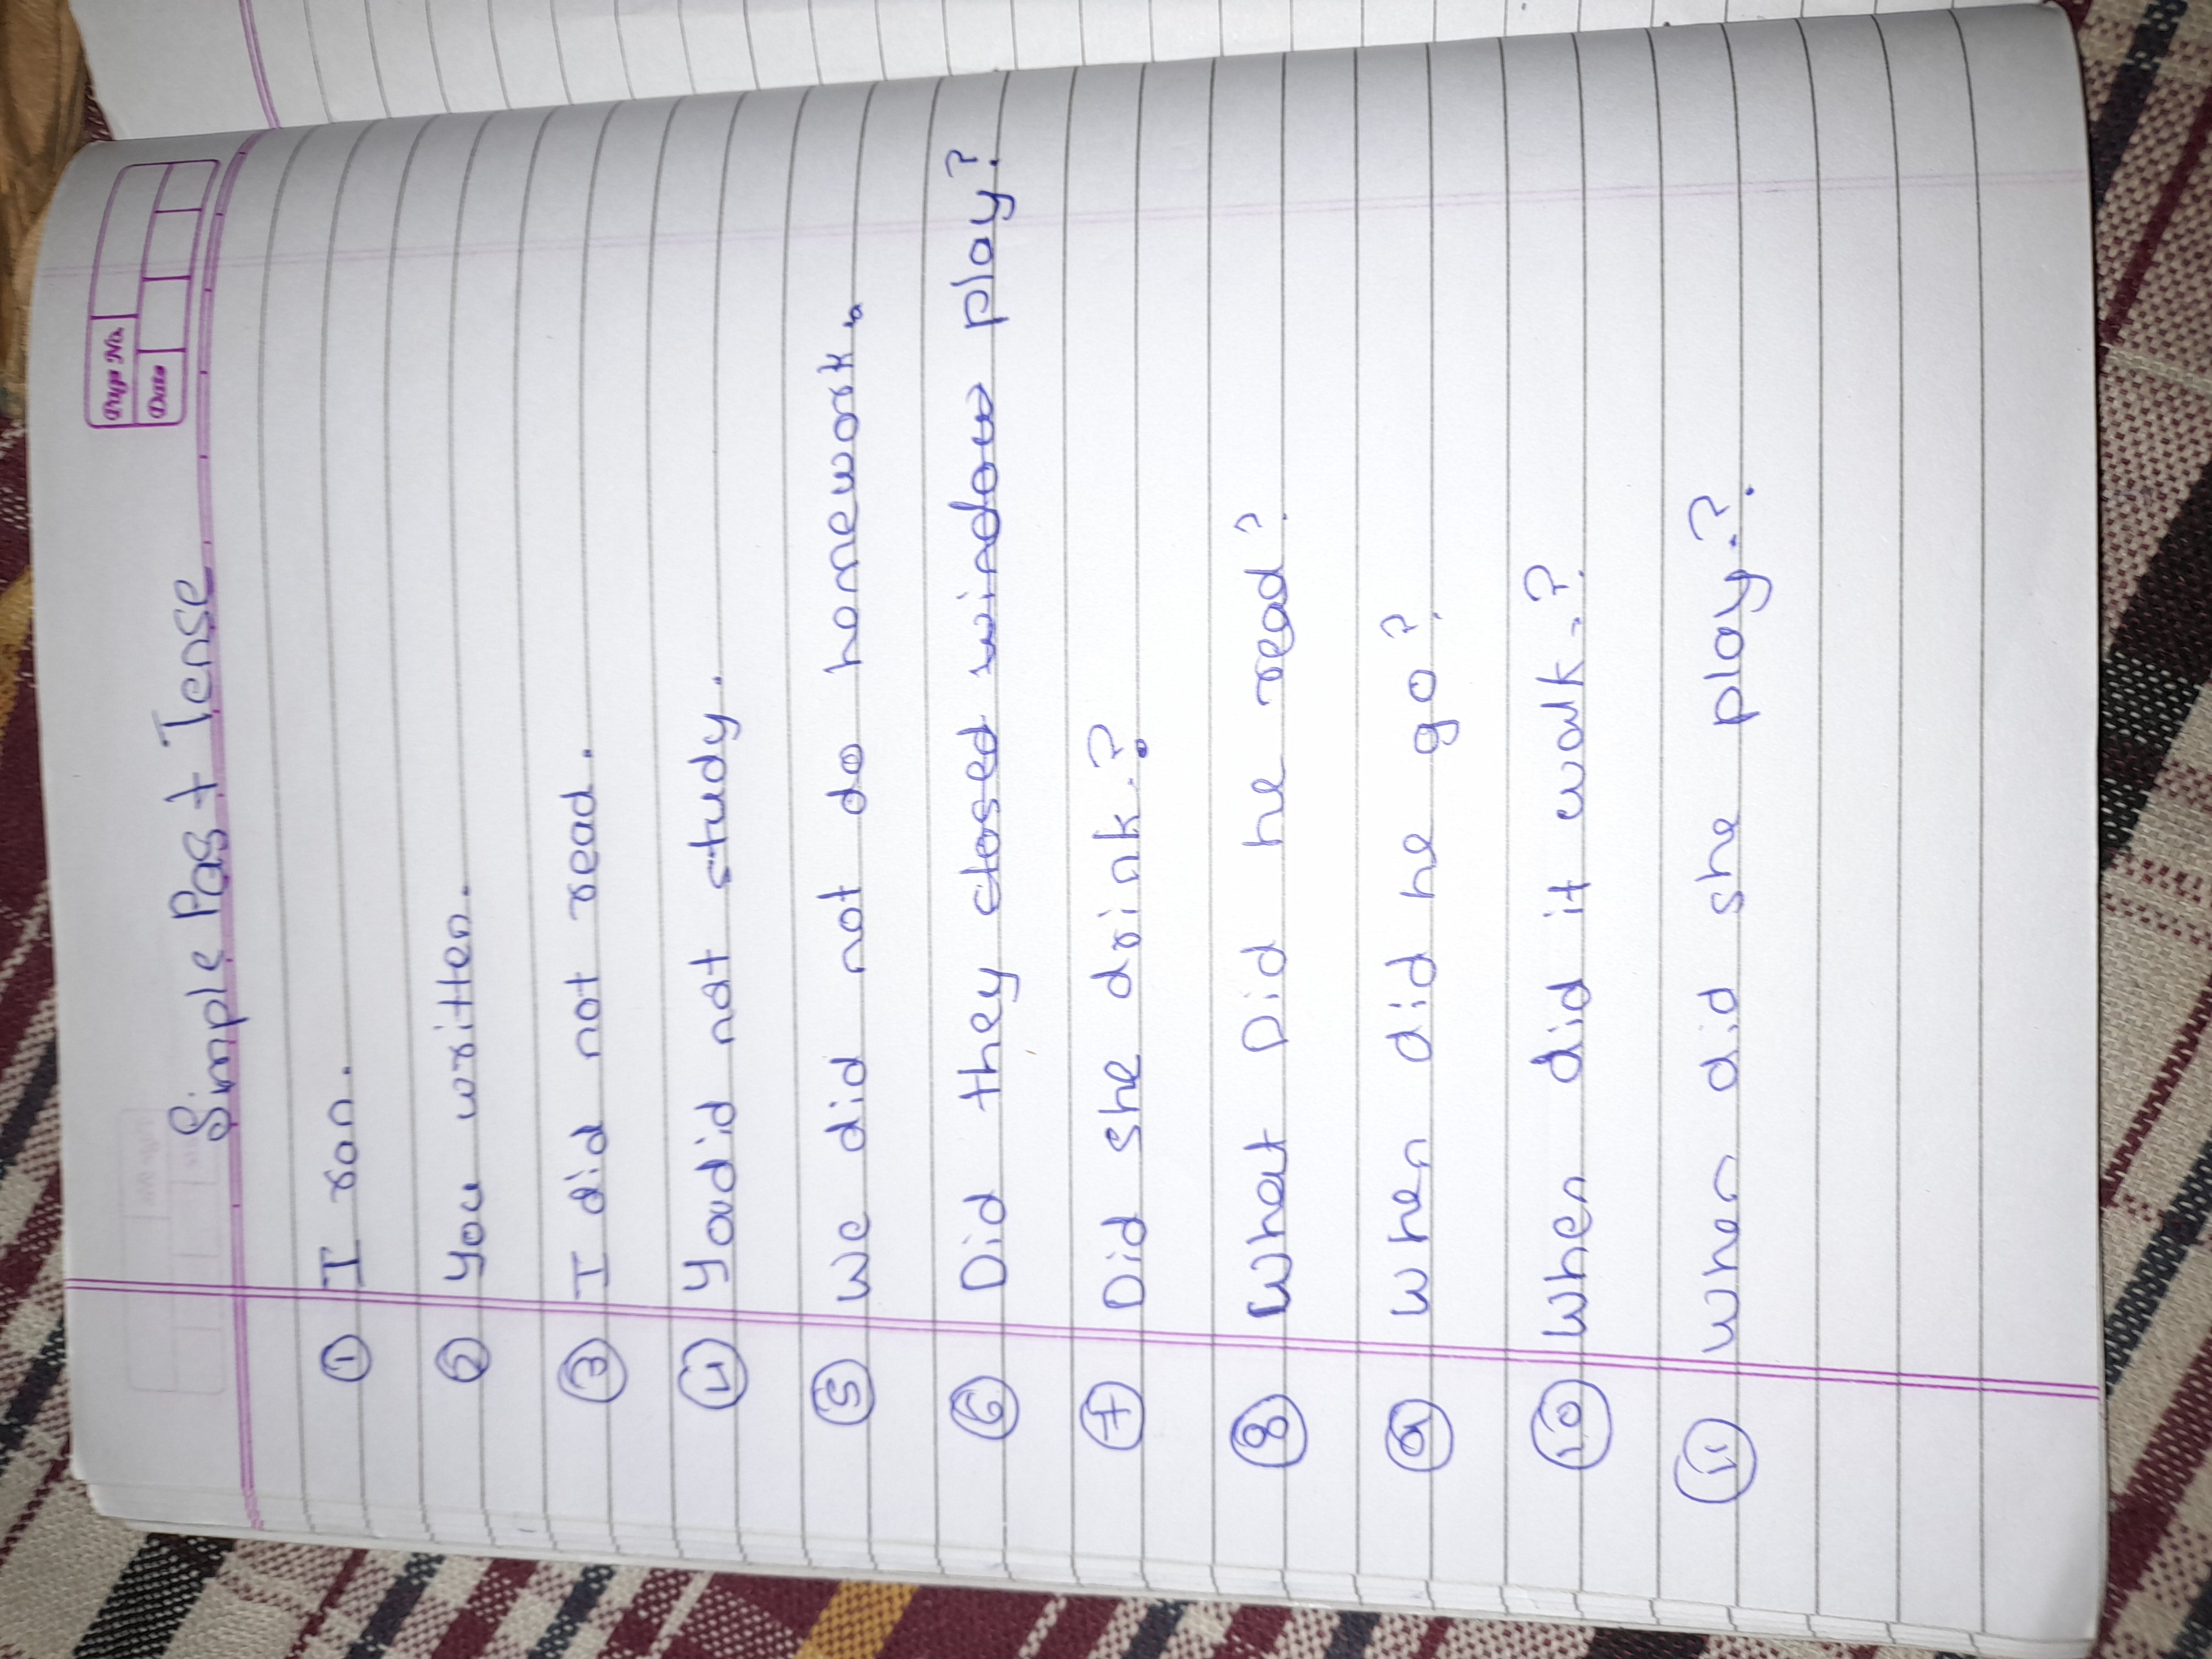 Page No.
Date
Simple Past Tense
① I ran.
② You written.
③ I did not read.
④ You did not study.
⑤ We did not do homework.
⑥ Did they closed window play?
⑦ Did she drink.?
⑧ What Did he read?
⑨ When did he go?
⑩ When did it walk.?
⑪ When did she play.?